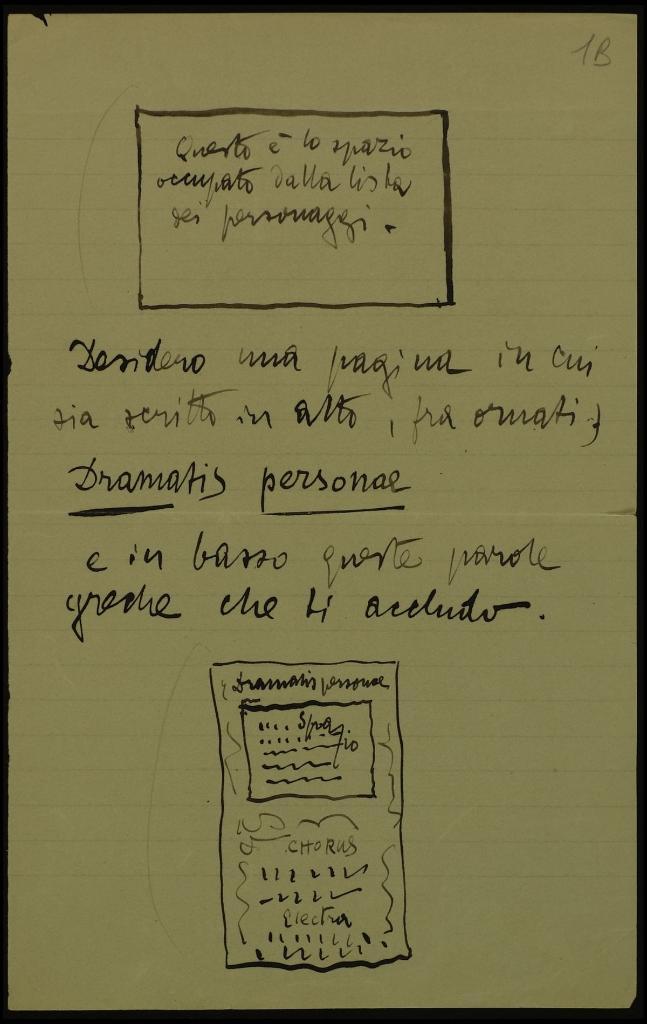 1B
Questo è lo spazio
occupato dalla lista
dei personaggi.
Desidero una pagina in cui
sia scritto in alto, fra ornati,
Dramatis personae
e in basso queste parole
greche che ti accludo.
Dramatis personae
Spa
zio
CHORUS
Electra